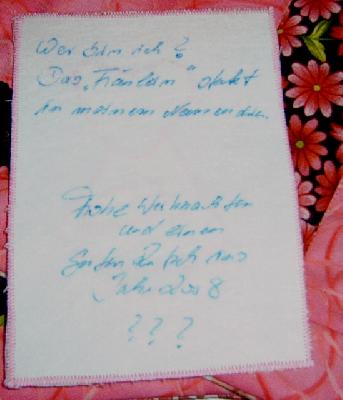 Wer bin ich?
Das „Fräulein“ steckt
in meinem Namen drin.
Frohe Weihnachten
und einen
Guten Rutsch ins
Jahr 2008
? ? ?